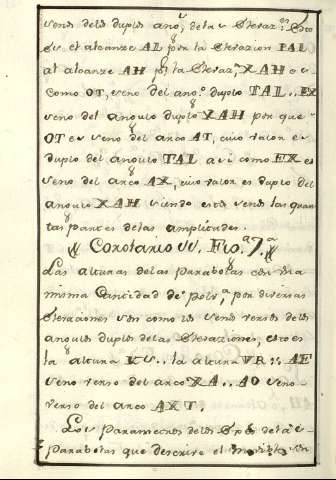 senos delos duplos ang.s dela s Eleraz.nes Esto
es el alcanze AL por la Elerazion TAL
al alcanze AH por la Eleraz.n XAH es
como OT, seno del ang.o duplo TAL.. EX
seno del angulo duplo XAH por que
OT es seno del arco AT, cuio valor es
duplo del angulo TAL asi como EX es
seno del arco AX, cuio valor es duplo del
angulo XAH siendo estos senos las quar
tas partes de las amplitudes.
Corolario Fig.a 7.a
Las alturas delas parabolas con una
misma Cantidad de Polv.a por diversas
Eleraciones son como los senos versos delos
angulos duplos delas Eleraziones, esto es
la altura la altura VR :: AE
seno verso del arco XA.. AO seno
verso del arco AXT.
Los Parametros delos de la s
parabolas que describe el